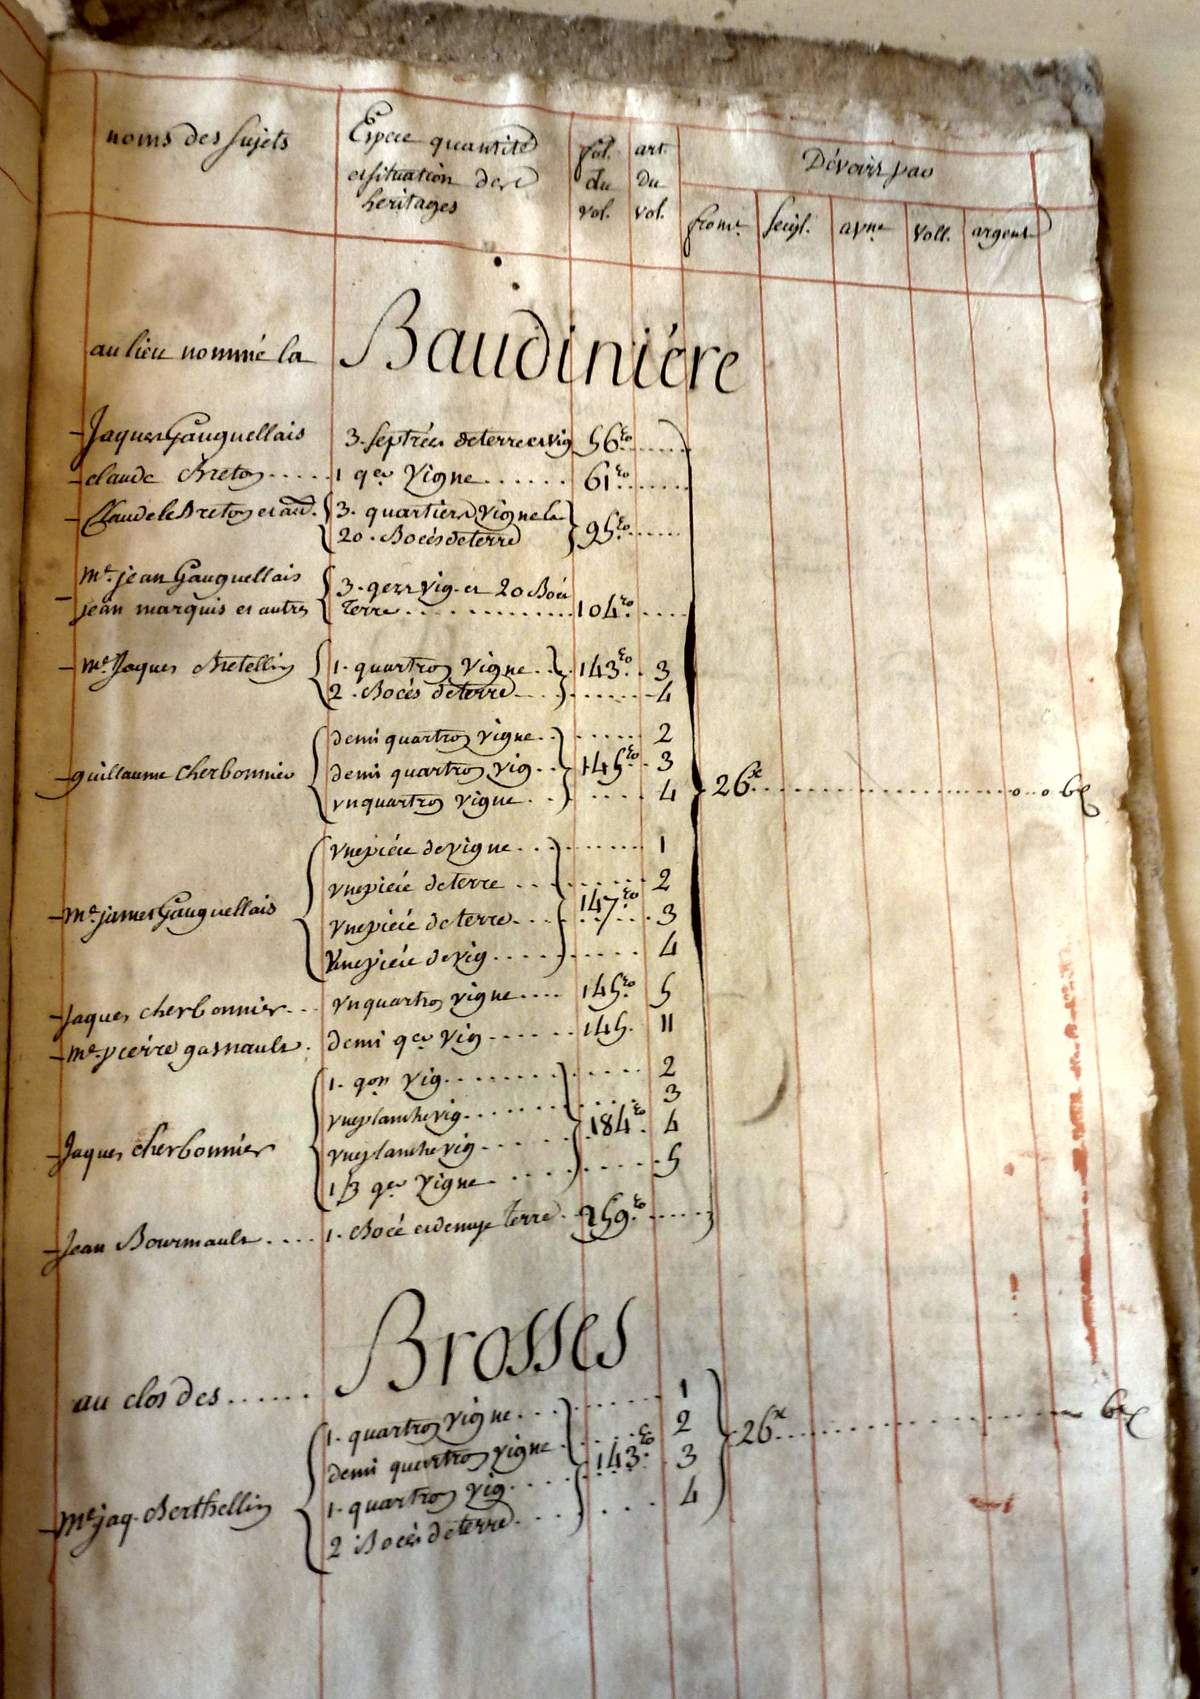 noms des sujets
Espece quantité
et situation des
heritages
fol.
du
vol.
art.
du
vol.
Dévoirs par
from.t
seigl.
avne
voll.
argent
au lieu nommé la Baudiniére
Jaques Gauguellais 3. septrées de terre et vig 56.ro
claude Breton 1 qer vigne 61.ro
Claude le Breton et au.
3. quartiers vigne la
20. Bocés de terre 95.ro
Me. jean Gauguellais
jean marquis et autres
3. qers vig. et 20 Bocé
terre 104.ro
Me. Jaques Bretellin
1. quartron vigne 143.ro 3
2. Bocés de terre 4
guillaume cherbonnier
demi quartron vigne 2
demi quartron vig 145.ro 3
vn quartron vigne 4
26.e 6
Me. james Gauguellais
vne piéce de vigne 1
vne piéce de terre 2
vne piéce de terre 147.ro 3
vne piéce de vig 4
Jaques cherbonnier vn quartron vigne 145.ro 5
Me. pierre gasnault demi qer vig 145. 11
Jaques cherbonnier
1. qon vig 2
vne planche vig 3
vne planche vig 184.ro 4
1/3 qer vigne 5
Jean Bourmault 1. Bocé et demye terre 259.ro
au clos des Brosses
Me jaq. Berthellin
1. quartron vigne 1
demi quartron vigne 2
1. quartron vig 143.ro 3
2 Bocés de terre 4
26.e 6